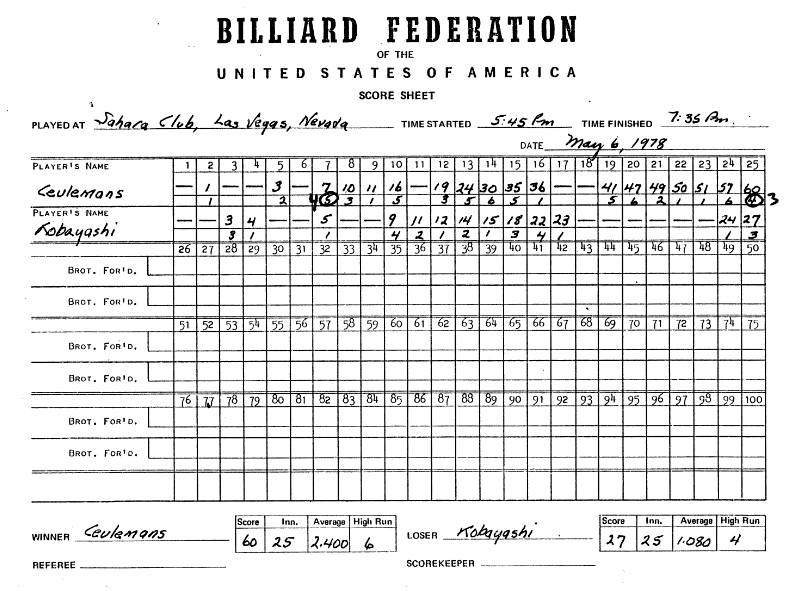 BILLIARD FEDERATION
OF THE
UNITED STATES OF AMERICA
SCORE SHEET
PLAYED AT Sahara Club, Las Vegas, Nevada TIME STARTED 5:45 Pm TIME FINISHED 7:35 Pm.
DATE May 6, 1978
PLAYER'S NAME 1 2 3 4 5 6 7 8 9 10 11 12 13 14 15 16 17 18 19 20 21 22 23 24 25
Ceulemans — 1 — — 3 — 7 10 11 16 — 19 24 30 35 36 — — 41 47 49 50 51 57 60
1 2 4 5 3 1 5 3 5 6 5 1 5 6 2 1 1 6 4 3
PLAYER'S NAME
Kobayashi — — 3 4 — — 5 — — 9 11 12 14 15 18 22 23 — — — — — — 24 27
3 1 1 4 2 1 2 1 3 4 1 1 3
26 27 28 29 30 31 32 33 34 35 36 37 38 39 40 41 42 43 44 45 46 47 48 49 50
BROT. FOR'D.
BROT. FOR'D.
51 52 53 54 55 56 57 58 59 60 61 62 63 64 65 66 67 68 69 70 71 72 73 74 75
BROT. FOR'D.
BROT. FOR'D.
76 77 78 79 80 81 82 83 84 85 86 87 88 89 90 91 92 93 94 95 96 97 98 99 100
BROT. FOR'D.
BROT. FOR'D.
Score Inn. Average High Run Score Inn. Average High Run
WINNER Ceulemans 60 25 2.400 6 LOSER Kobayashi 27 25 1.080 4
REFEREE SCOREKEEPER